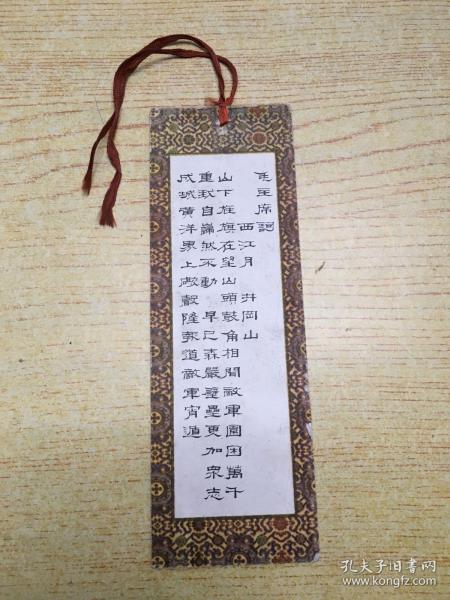 毛主席詞
西江月 井岡山
山下旌旗在望山頭鼓角相聞敵軍圍困萬千
重我自巋然不動 早已森嚴壁壘更加衆志
成城黃洋界上礮聲隆報道敵軍宵遁
孔夫子旧书网
www.kongfz.com